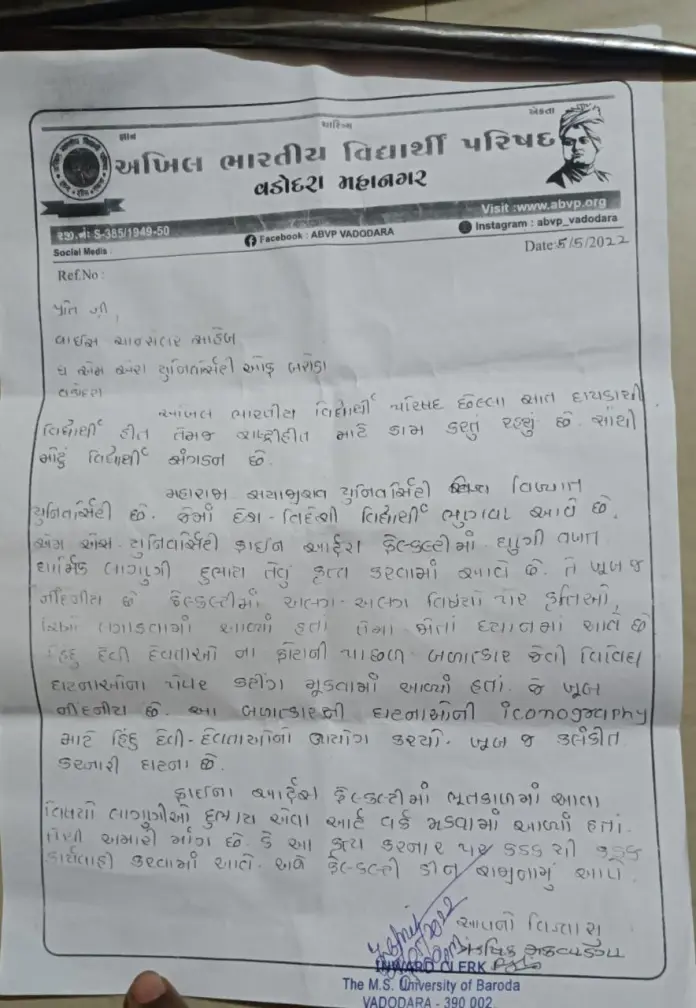 જ્ઞાન
ચારિત્ર્ય
એકતા
અખિલ ભારતીય વિદ્યાર્થી પરિષદ
વડોદરા મહાનગર
રજી.નં: S-385/1949-50
Visit :www.abvp.org
Social Media :
Facebook : ABVP VADODARA
Instagram : abvp_vadodara
Date:5/5/2022
Ref.No :
પ્રતિ શ્રી,
વાઈસ ચાન્સેલર સાહેબ
ધ એમ એસ યુનિવર્સિટી ઓફ બરોડા
વડોદરા
અખિલ ભારતીય વિદ્યાર્થી પરિષદ છેલ્લા સાત દાયકાથી
વિદ્યાર્થી હીત તેમજ રાષ્ટ્રહીત માટે કામ કરતું રહ્યું છે. સૌથી
મોટું વિદ્યાર્થી સંગઠન છે.
મહારાજા સયાજીરાવ યુનિવર્સિટી વિખ્યાત
યુનિવર્સિટી છે. જેમાં દેશ-વિદેશી વિદ્યાર્થી ભણવા આવે છે.
એમ એસ-યુનિવર્સિટી ફાઈન આર્ટસ ફેકલ્ટીમાં ઘણી વખત
ધાર્મિક લાગણી દુભાય તેવું કૃત્ય કરવામાં આવે છે. તે ખૂબ જ
નીંદનીય છે ફેકલ્ટીમાં અલગ-અલગ વિષયો પર કૃતિઓ
લગાડવામાં આવ્યાં હતાં તેમાં જોતાં ધ્યાનમાં આવે છે
હિંદુ દેવી દેવતાઓ ના ફોટાની પાછળ બળાત્કાર જેવી વિવિધ
ઘટનાઓના પેપર કટીંગ મૂકવામાં આવ્યાં હતાં. જે ખૂબ
નીંદનીય છે. આ બળાત્કારની ઘટનાઓની iconography
માટે હિંદુ દેવી-દેવતાઓનો ઉપયોગ કર્યો. ખૂબ જ કલંકીત
કરનારી ઘટના છે.
ફાઈન આર્ટ્સ ફેકલ્ટીમાં ભૂતકાળમાં આવા
વિષયો લાગણીઓ દુભાય એવા આર્ટ વર્ક મૂકવામાં આવ્યાં હતાં.
તેથી અમારી માંગ છે. કે આ કૃત્ય કરનાર પર કડક થી કડક
કાર્યવાહી કરવામાં આવે. અને ફેકલ્ટી ડીન રાજીનામું આપે.
આપનો વિશ્વાસુ
INWARD CLERK
The M.S. University of Baroda
VADODARA - 390 002